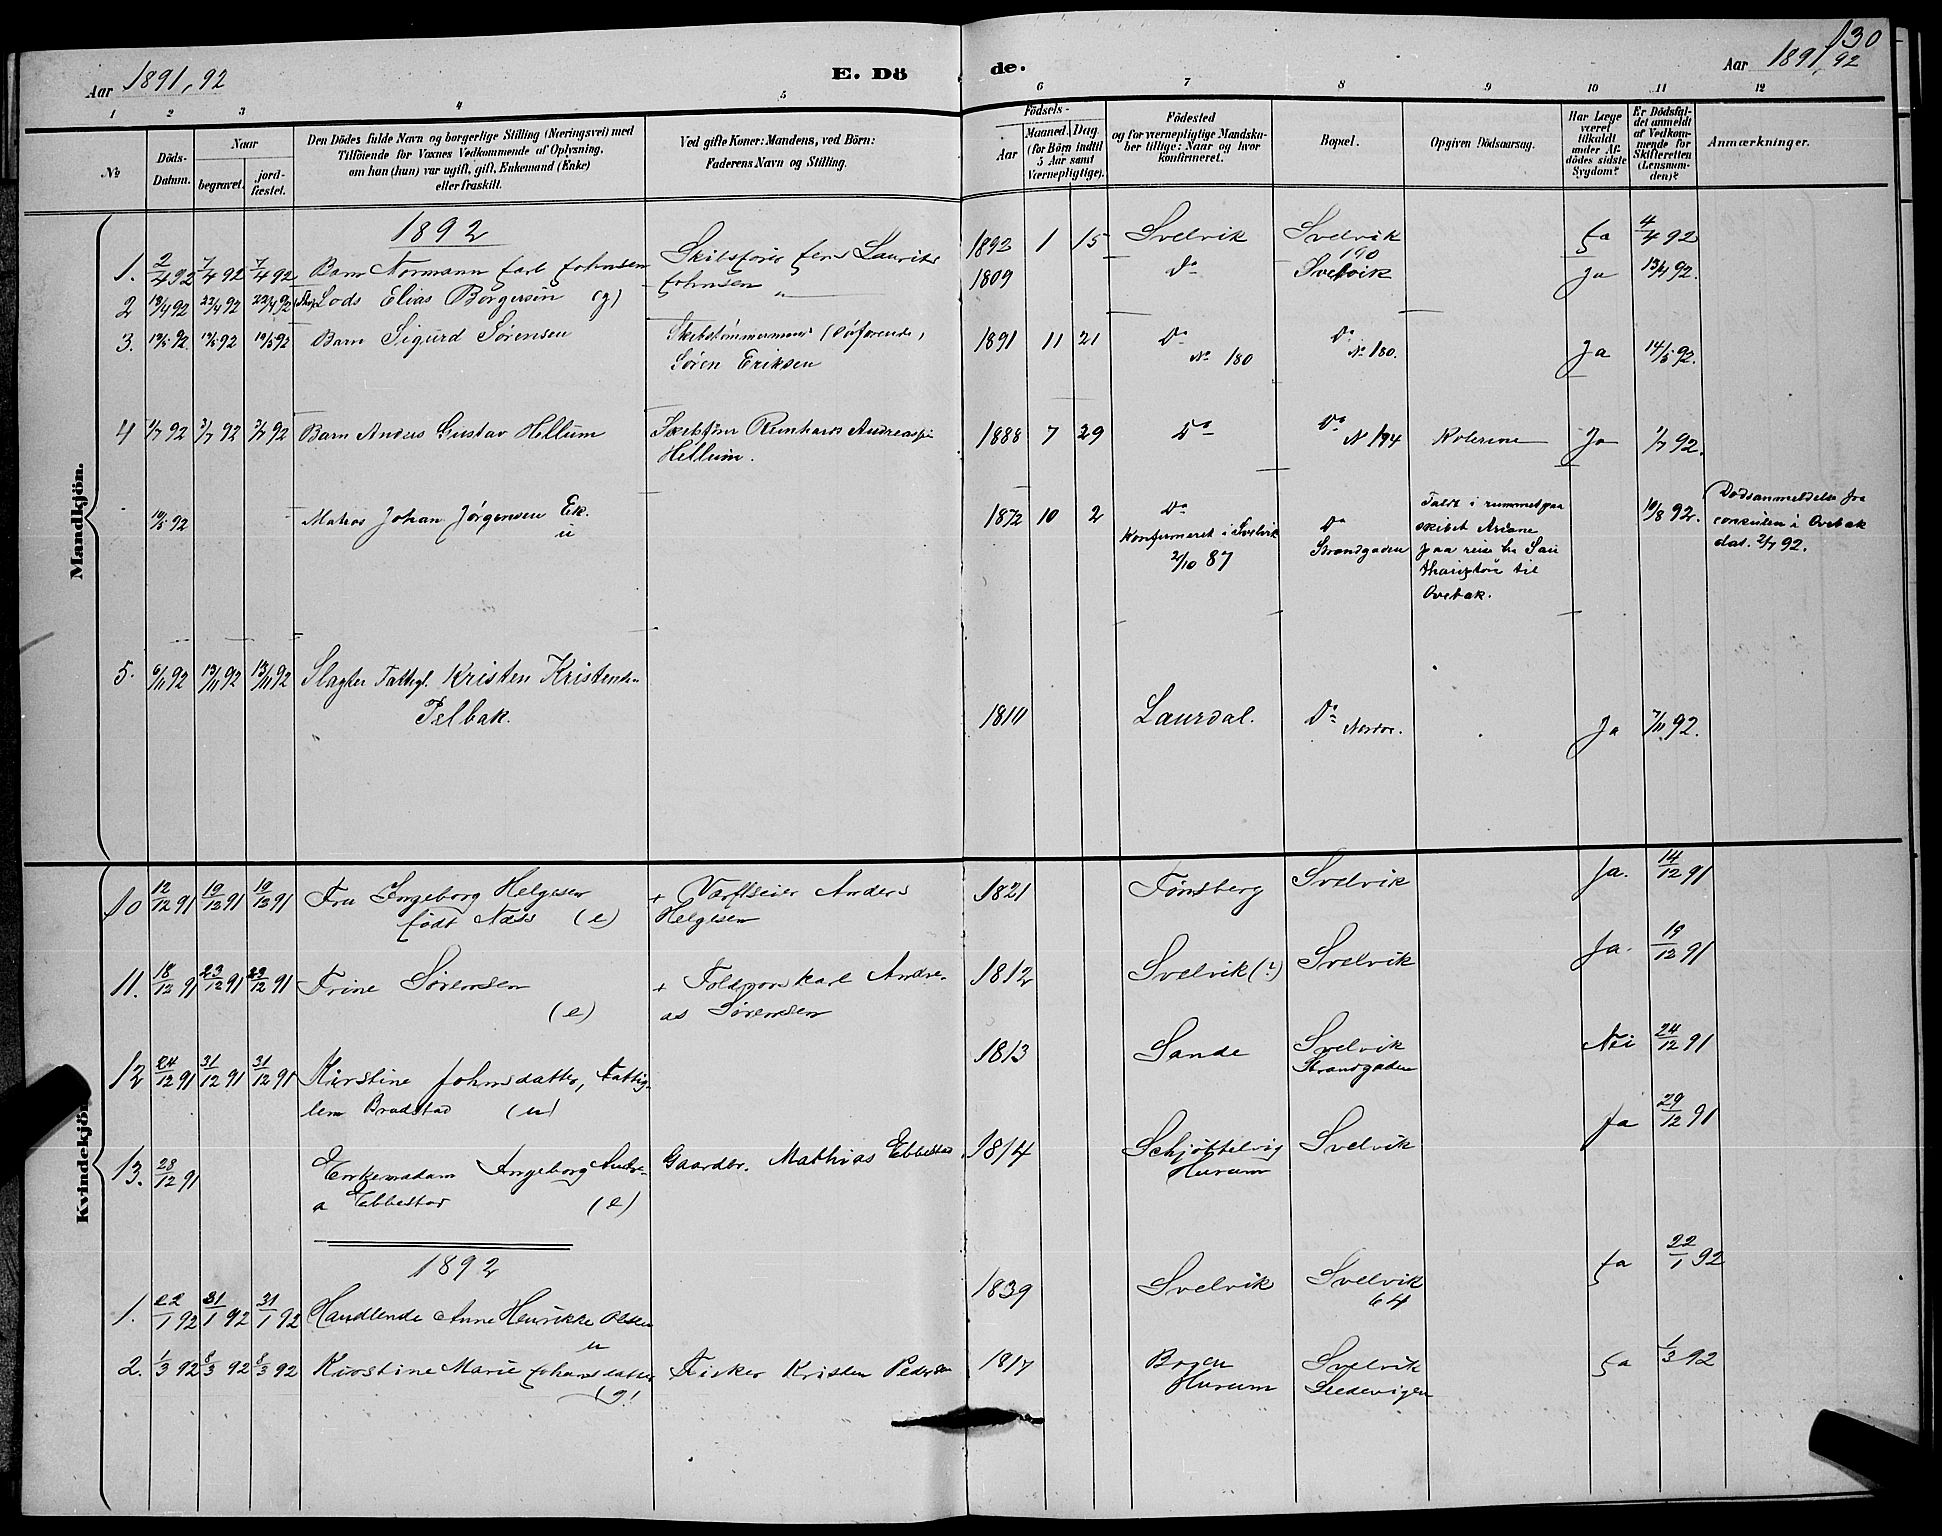 130
Aar 1891, 92
E. Dö de.
Aar 1891, 92
1 2 3 4 5 6 7 8 9 10 11 12
№
Döds-
Datum.
Naar
begravet.
jord-
fæstet.
Den Dödes fulde Navn og borgerlige Stilling (Næringsvei) med
Tilföiende for Voxnes Vedkommende af Oplysning,
om han (hun) var ugift, gift, Enkemand (Enke)
eller fraskilt.
Ved gifte Koner: Mandens, ved Börn:
Faderens Navn og Stilling.
Födsels-
Aar
Maaned. Dag
(for Börn indtil
5 Aar samt
Værnepligtige).
Födested
og for værnepligtige Mandska-
ber tillige: Naar og hvor
konfirmeret.
Bopæl.
Opgiven Dödsaarsag.
Har Læge
været
tilkaldt
under Af-
dödes sidste
Sygdom?
Er Dödsfal-
det anmeldt
af Vedkom-
mende for
Skifteretten
(Lensman-
den)?
Anmærkninger.
Mandkjön.
1892
1. 2/4 92 7/4 92 7/4 92 Barn Normann Carl Johnsen Skibsfører Jens Laurits Johnsen 1892 1 15 Svelvik Svelvik 190 Ja 4/4 92
2 13/4 92 22/4 92 22/4 92 Lods Elias Borgersen (g) " 1809 Do Svelvik Ja 13/4 92.
3. 92. 92 92 Barn Sigurd Sørensen Skibstømmermand (Søfarende) 1891 11 21 Do Do
Søren Eriksen № 180 № 180. Ja 14/5 92.
4 1/7 92 3/7 92 3/7 92 Barn Anders Gustav Hellum Reinhardt 1888 7 29 Do Do N 194 Kolerine Ja 1/7 92.
Hellum.
92 Matros Johan Jørgensen Ek.
u
1872 10 2 Do
Konfirmeret i Svelvik
2/10 87
Do
Strandgaden
Faldt i rummet paa
skibet Ariane
paa reise fra Sau
til
10/8 92.
Dødsanmeldelse fra
consulen i
dat. 2/7 92.
5. 6/11 92 13/11 92 13/11 92 Slagter Fattigl. Kristen Kristensen
Pelbak.
1810 Laurdal. Do Ja 7/11 92.
Kvindekjön
10 12/12 91 19/12 91 19/12 91 Fru Ingeborg Helgesen + Værftseier Anders 1821 Tønsberg Svelvik Ja. 14/12 91
født Næss (e) Helgesen
11. 18/12 91 23/12 91 23/12 91 Trine Sørensen + Toldopsskarl Andre- 1812 Svelvik (?) Svelvik Ja. 19/12 91
(e) as Sørensen
12 24/12 91 31/12 91 31/12 91 Kirstine Johnsdatter, Fattig- 1813 Sande Svelvik Nei 24/12 91
lem Bradstad (u) Strandgaden
13. 28/12 91 Enkemadam Ingeborg Andre- Gaardbr. Mathias Ebbestad 1814 Schjøttelvig Svelvik Ja 29/12 91
a Ebbestad (e) Hurum
1892
1. 22/1 92 31/1 92 31/1 92 Handlende Anne Henrikke Olsen 1839 Svelvik Svelvik Ja 22/1 92
u 64
2. 1/3 92 8/3 92 8/3 92 Kirstine Marie Johansdatter Fisker Kristen Pedersen 1817 Svelvik Ja 1/3 92
(g) Hurum